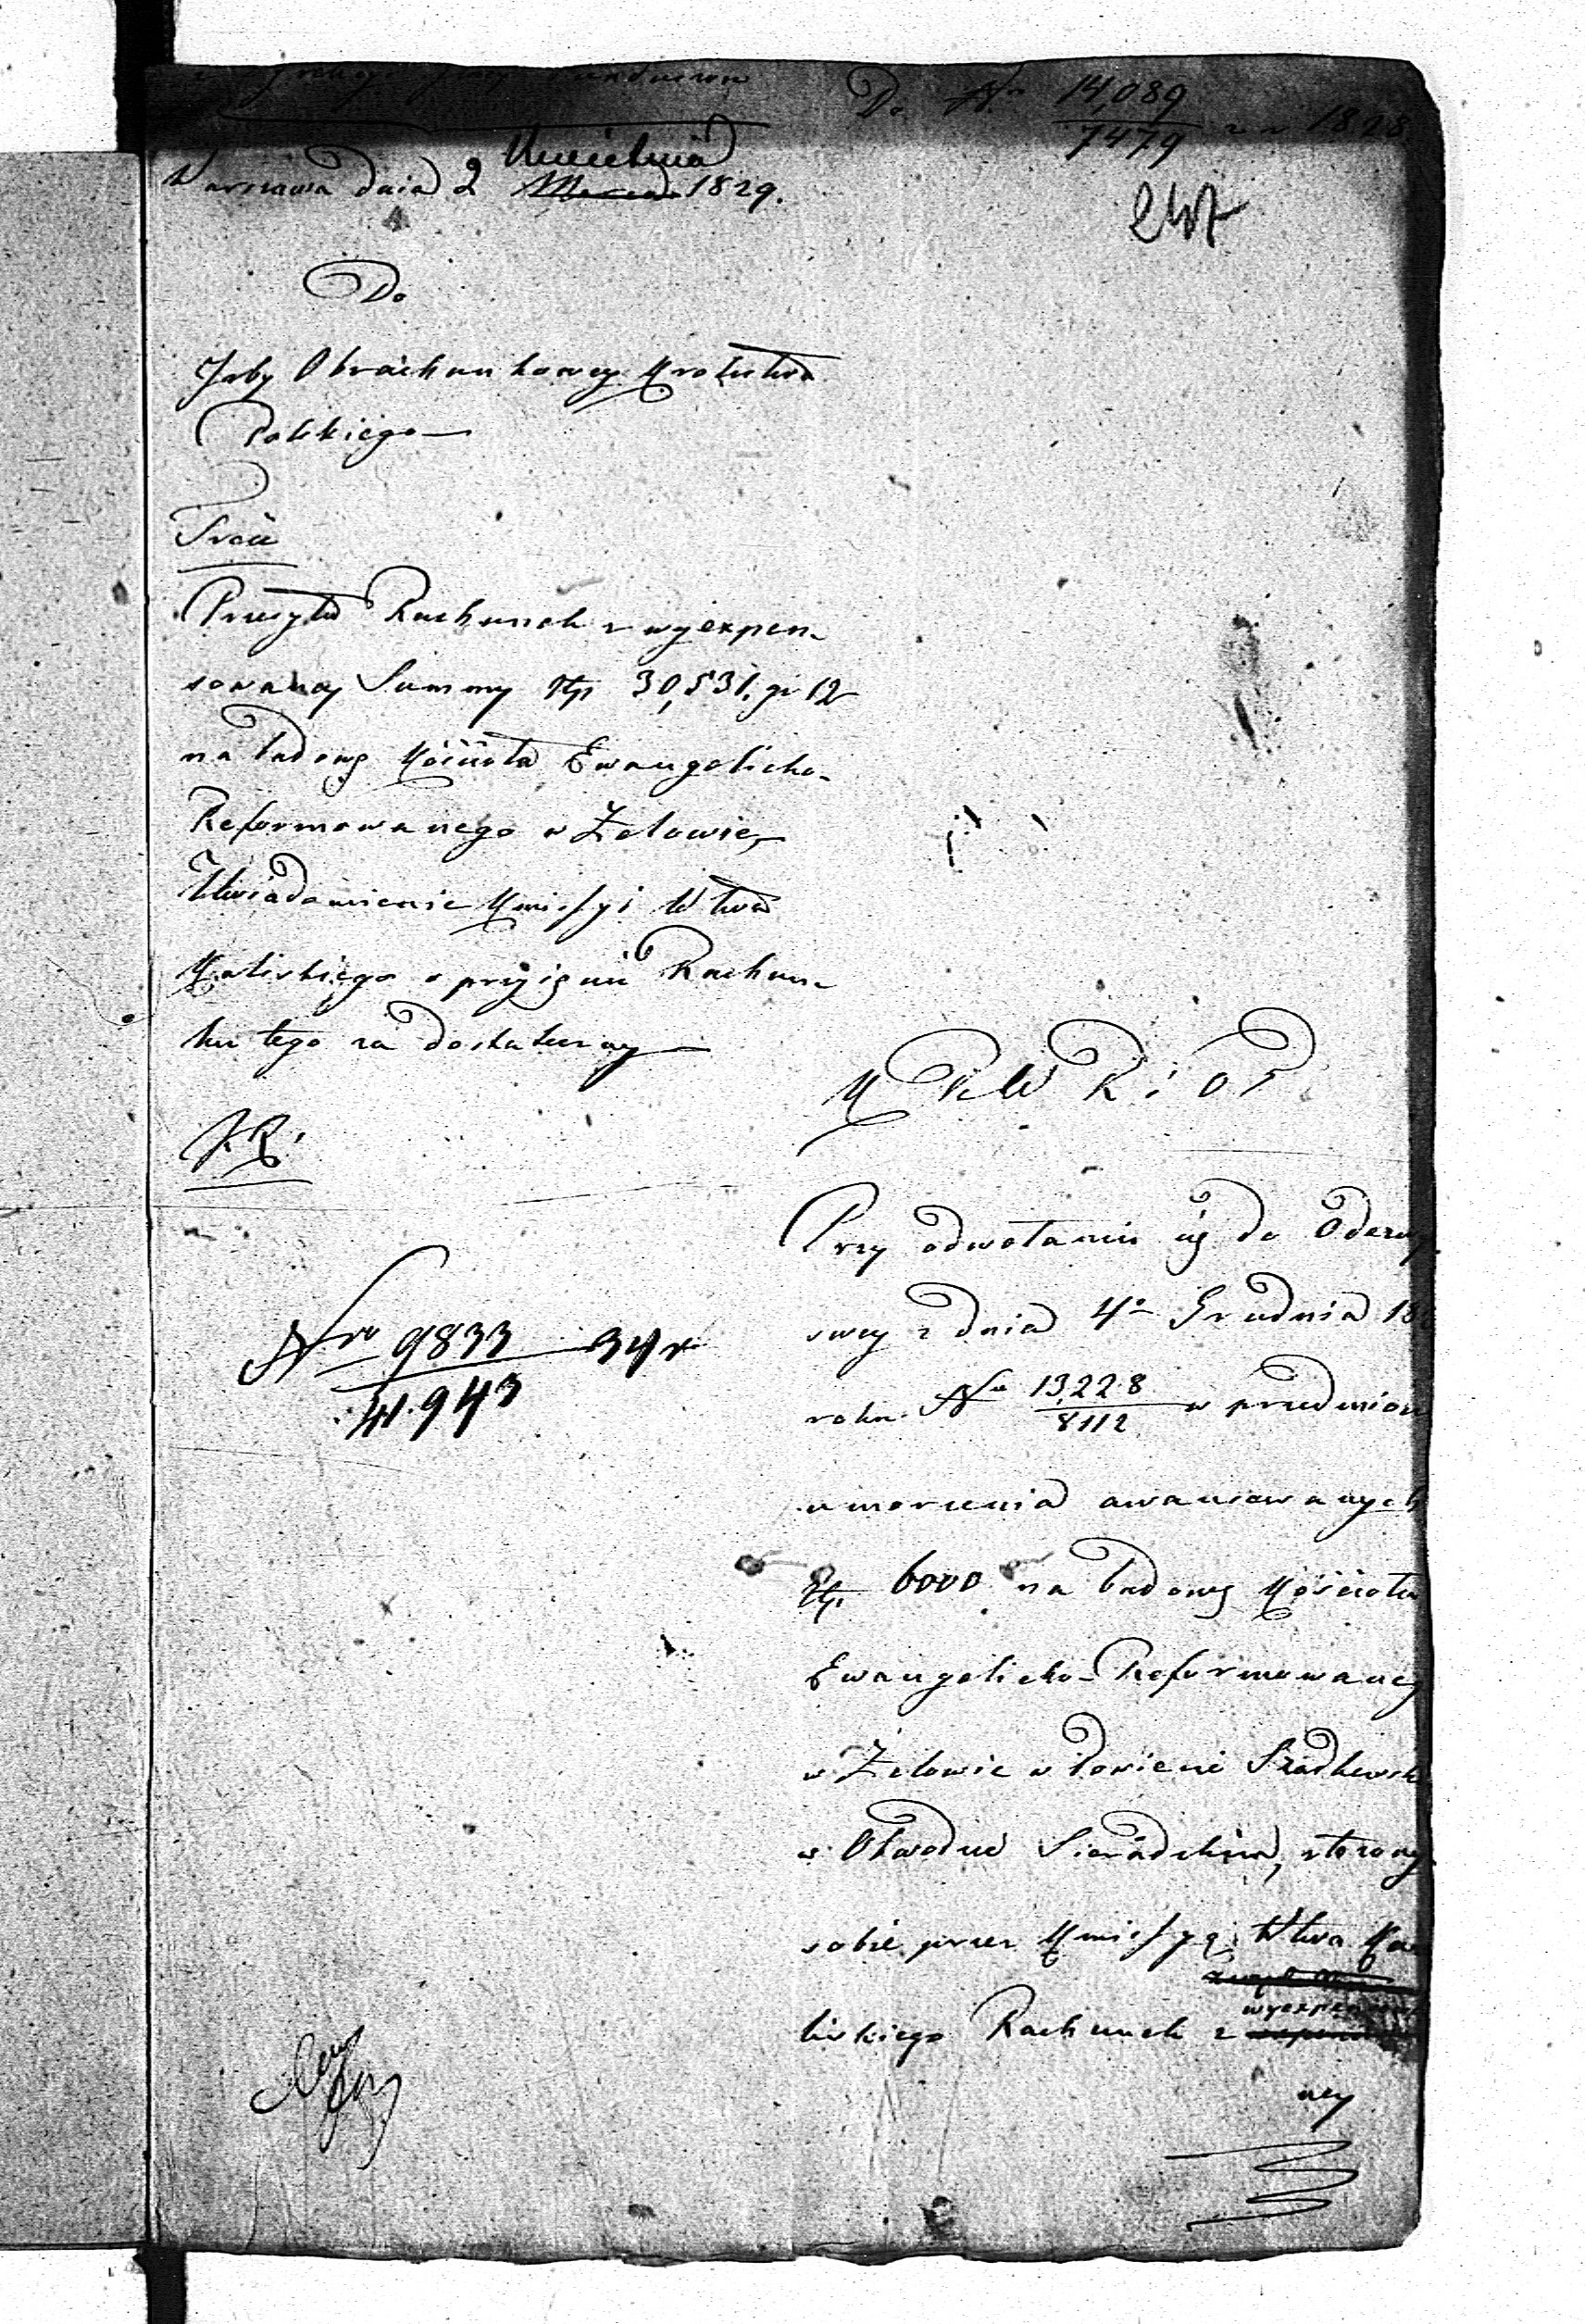 Do Nro 14,089
7479 z r 1828
Kwietnia
Warszawa dnia 2 Marca 1829.
247
Do
Izby Obrachunkowey Królestwa
Polskiego
Treść
Przesyła Rachunek z wyexpen-
sowaney Summy złp 30,531. gr 12
na budowę Kościoła Ewangelicko-
Reformowanego w Zelowie,
Uwiadomienie Kmissyi Wtwa
Kaliskiego o przyięciu Rachun-
ku tego za dostateczny
K R W R i O P
Nro 9833
41.943
Przy odwołaniu się do Odezwy
swey z dnia 4o Grudnia 18
roku No 13,228
8112 w przedmio
umorzenia awansowanych
złp. 6000 na budowę Kościoła
Ewangelicko-Reformowaneg
w Zelowie w Powiecie Szadkowsk
w Obwodzie Sieradzkim, złożony
sobie przez Kmissyę Wtwa Ka
liskiego Rachunek z wyexpensowa
ney